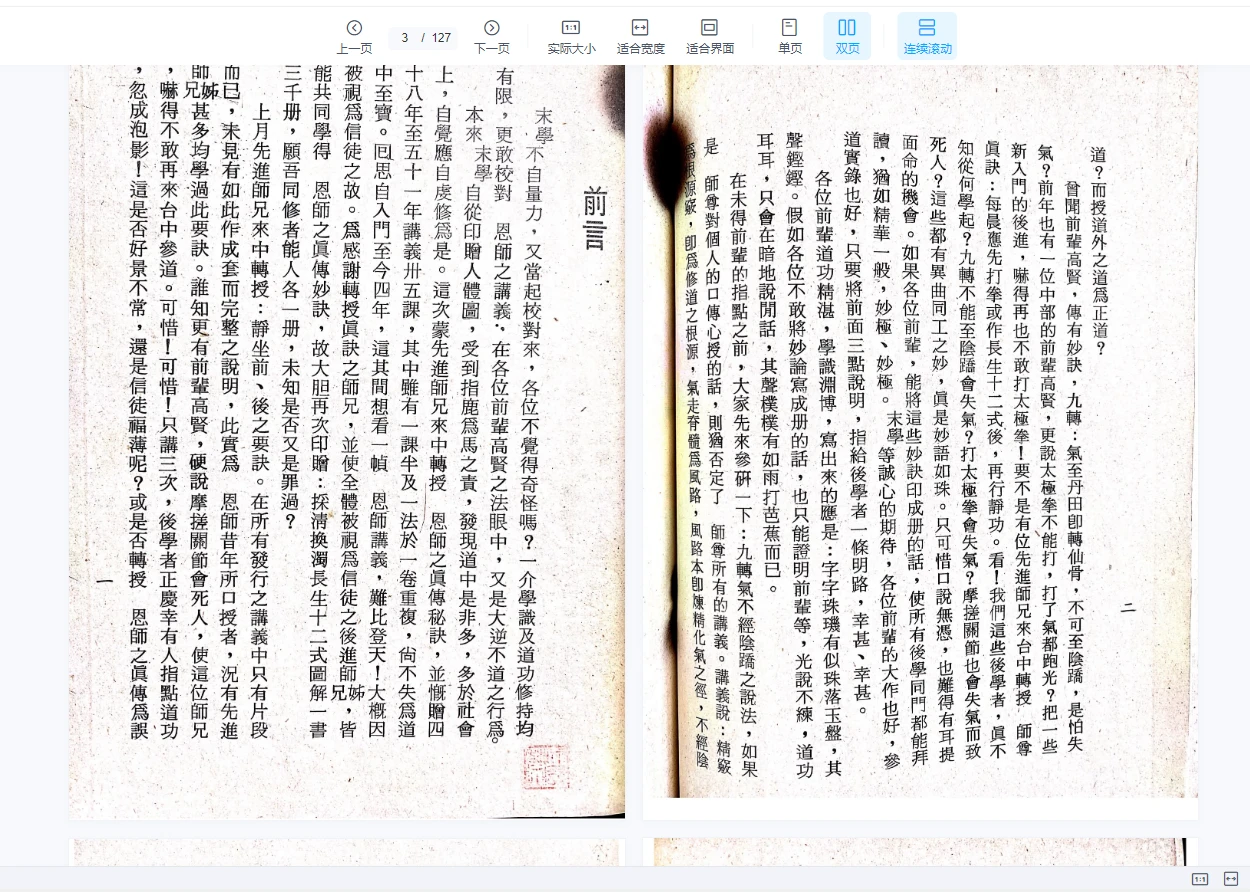 上一页
3 / 127
下一页
实际大小
适合宽度
适合界面
单页
双页
连续滚动
前言
末學不自量力，又當起校對來，各位不覺得奇怪嗎？一介學識及道功修持均
有限，更敢校對　恩師之講義．在各位前輩高賢之法眼中，又是大逆不道之行爲。
本來末學自從印贈人體圖，受到指鹿爲馬之責，發現道中是非多，多於社會
上，自覺應自虔修爲是。這次蒙先進師兄來中轉授　恩師之眞傳秘訣，並慨贈四
十八年至五十一年講義卅五課，其中雖有一課半及一法於一卷重複，尙不失爲道
中至寶。回思自入門至今四年，這其間想看一幀　恩師講義，難比登天！大概因
被視爲信徒之故。爲感謝轉授眞訣之師兄，並使全體被視爲信徒之後進師兄姊，皆
能共同學得　恩師之眞傳妙訣，故大胆再次印贈：採清換濁長生十二式圖解一書
三千册，願吾同修者能人各一册，未知是否又是罪過？
上月先進師兄來中轉授：靜坐前、後之要訣。在所有發行之講義中只有片段
而已，未見有如此作成套而完整之說明，此實爲　恩師昔年所口授者，況有先進
師兄姊甚多均學過此要訣。誰知更有前輩高賢，硬說摩搓關節會死人，使這位師兄
，嚇得不敢再來台中參道。可惜！可惜！只講三次，後學者正慶幸有人指點道功
，忽成泡影！這是否好景不常，還是信徒福薄呢？或是否轉授　恩師之眞傳爲誤
一
道？而授道外之道爲正道？
曾聞前輩高賢，傳有妙訣，九轉：氣至丹田卽轉仙骨，不可至陰蹻，是怕失
氣？前年也有一位中部的前輩高賢，更說太極拳不能打，打了氣都跑光？把一些
新入門的後進，嚇得再也不敢打太極拳！要不是有位先進師兄來台中轉授　師尊
眞訣：每晨應先打拳或作長生十二式後，再行靜功。看！我們這些後學者，眞不
知從何學起？九轉不能至陰蹻會失氣？打太極拳會失氣？摩搓關節也會失氣而致
死人？這些都有異曲同工之妙，眞是妙語如珠。只可惜口說無憑，也難得有耳提
面命的機會。如果各位前輩，能將這些妙訣印成册的話，使所有後學同門都能拜
讀，猶如精華一般，妙極、妙極。末學等誠心的期待，各位前輩的大作也好，參
道實錄也好，只要將前面三點說明，指給後學者一條明路，幸甚、幸甚。
各位前輩道功精湛，學識淵博，寫出來的應是：字字珠璣有似珠落玉盤，其
聲鏗鏗。假如各位不敢將妙論寫成册的話，也只能證明前輩等，光說不練，道功
耳耳，只會在暗地說閒話，其聲樸樸有如雨打芭蕉而已。
在未得前輩的指點之前，大家先來參硏一下：九轉氣不經陰蹻之說法，如果
是　師尊對個人的口傳心授的話，則猶否定了　師尊所有的講義。講義說：精竅
爲根源竅，卽爲修道之根源，氣走脊髓爲風路，風路本卽陳精化氣之徑，不經陰
二